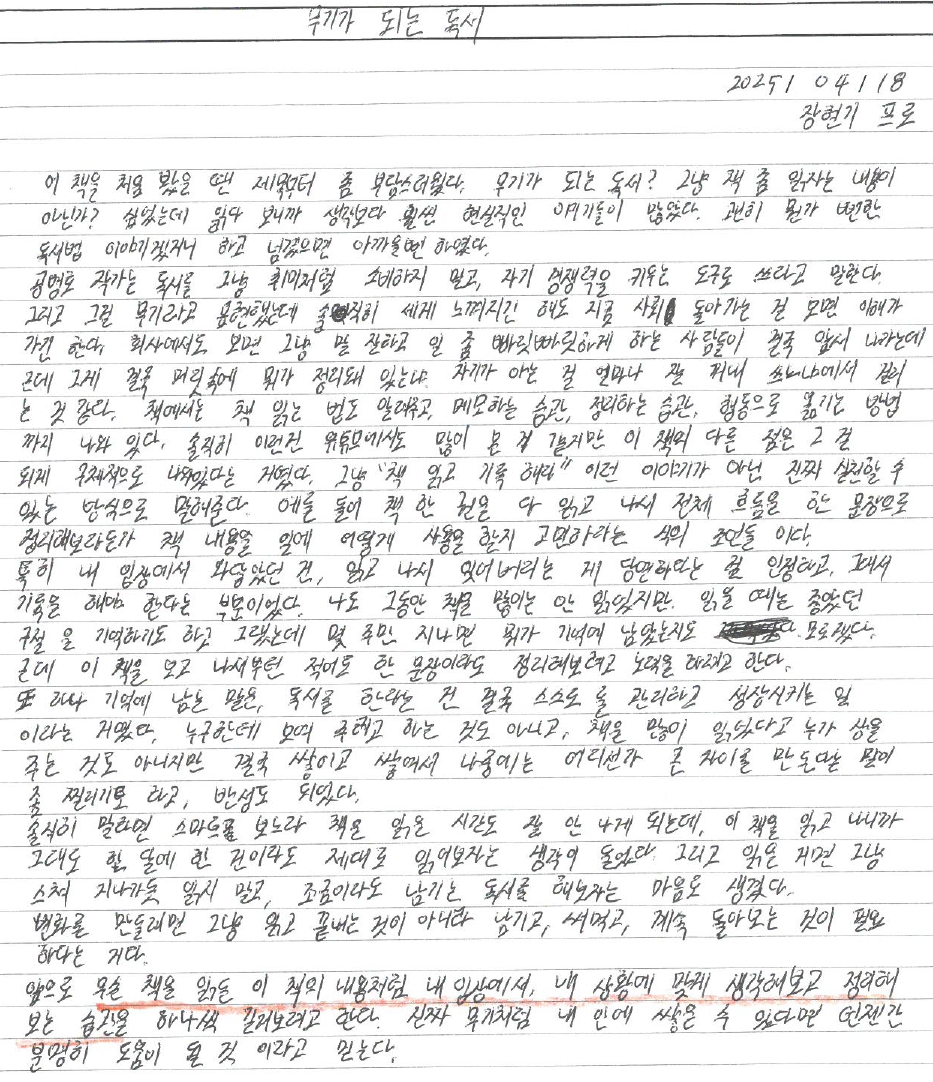 무기가 되는 독서
2025 / 04 / 18
장현기 프로
이 책을 처음 봤을 땐 제목부터 좀 부담스러웠다. 무기가 되는 독서? 그냥 책 좀 읽자는 내용이
아닌가? 싶었는데 읽다 보니까 생각보다 훨씬 현실적인 얘기들이 많았다. 괜히 뭔가 뻔한
독서법 이야기겠거니 하고 넘겼으면 아까울뻔 하였다.
작가는 독서를 그냥 취미처럼 소비하지 말고, 자기 경쟁력을 키우는 도구로 쓰라고 말한다.
그리고 그걸 무기라고 표현했는데 솔직히 세게 느껴지긴 해도 지금 사회 돌아가는 걸 보면 이해가
가긴 한다. 회사에서도 보면 그냥 말 잘하고 일 좀 빠릿빠릿하게 하는 사람들이 결국 앞서 나가는데
근데 그게 결국 머릿속에 뭐가 정리돼 있는냐. 자기가 아는 걸 얼마나 잘 꺼내 쓰느냐에서 갈리
는 것 같다. 책에서는 책 읽는 법도 알려주고, 메모하는 습관, 정리하는 습관, 행동으로 옮기는 방법
까지 나와 있다. 솔직히 이런건 유튜브에서도 많이 본 것 같지만 이 책의 다른 점은 그 걸
되게 구체적으로 나와있다는 거였다. 그냥 "책 읽고 기록 해라" 이런 이야기가 아닌 진짜 실천할 수
있는 방식으로 말해준다. 예를 들어 책 한 권을 다 읽고 나서 전체 흐름을 한 문장으로
정리해보라든가 책 내용을 일에 어떻게 사용을 할지 고민하라는 식의 조언들 이다.
특히 내 입장에서 와닿았던 건, 읽고 나서 잊어버리는 게 당연하다는 걸 인정하고, 그래서
기록을 해야 한다는 부분이었다. 나도 그동안 책을 많이는 안 읽었지만. 읽을 때는 좋았던
구절 을 기억하기도 하고 그랬는데 몇 주만 지나면 뭐가 기억에 남았는지도 모르겠다.
근데 이 책을 보고 나서부턴 적어도 한 문장이라도 정리해보려고 노력을 하려고 한다.
또 하나 기억에 남는 말은, 독서를 한다는 건 결국 스스로 를 관리하고 성장시키는 일
이라는 거였다. 누구한테 보여 주려고 하는 것도 아니고, 책을 많이 읽었다고 누가 상을
주는 것도 아니지만 결국 쌓이고 쌓여서 나중에는 어디선가 큰 차이를 만든다는 말이
좀 찔리기도 하고, 반성도 되었다.
솔직히 말하면 스마트폰 보느라 책은 읽을 시간도 잘 안 나게 되는데, 이 책을 읽고 나니까
그래도 한 달에 한 권이라도 제대로 읽어보자는 생각이 들었다. 그리고 읽은 거면 그냥
스쳐 지나가듯 읽지 말고, 조금이라도 남기는 독서를 해보자는 마음도 생겼다.
변화를 만들려면 그냥 읽고 끝내는 것이 아니라 남기고, 써먹고, 계속 돌아보는 것이 필요
하다는 거다.
앞으로 무슨 책을 읽든 이 책의 내용처럼 내 입장에서, 내 상황에 맞게 생각해보고 정리해
보는 습관을 하나씩 길러보려고 한다. 진짜 무기처럼 내 안에 쌓을 수 있다면 언젠간
분명히 도움이 될 것 이라고 믿는다.